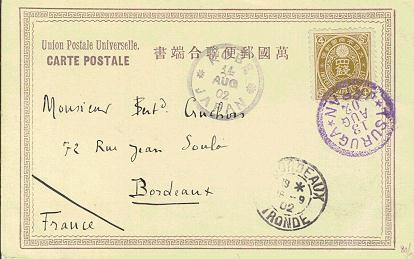 Union Postale Universelle.
CARTE POSTALE
萬國郵便聯合端書
14
AUG
02
JAPAN
TSURUGA
13
AUG
02
Monsieur Bert^d.
72 Rue Jean Soula
Bordeaux
France
BORDEAUX
9
02
GIRONDE